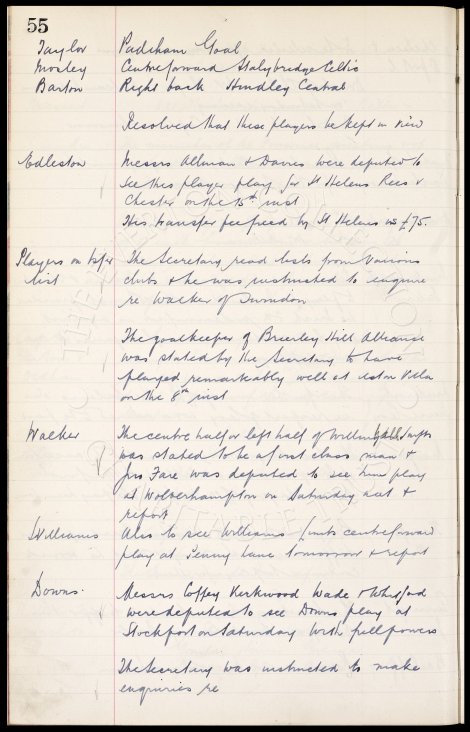 55
Taylor Padiham Goal
Morley Centre forward Stalybridge Celtic
Barton Right back Hindley Central
Resolved that these players be kept in view
Edleston Messrs Allman & Davies were deputed to
see this player play for St Helens Recs v
Chester on the 15th inst
His transfer fee fixed by St Helens is £75.
Players on tsfer The Secretary read lists from various
list clubs & he was instructed to enquire
re Walker of Swindon
The goalkeeper of Brierley Hill Alliance
was stated by the Secretary to have
played remarkably well at Aston Villa
on the 8th inst
Walker The centre half or left half of Willingdale Swifts
was stated to be a first class man &
Jno Fare was deputed to see him play
at Wolverhampton on Saturday next &
report
Williams Also to see Williams centre forward
play at Penny Lane tomorrow & report
Downs. Messrs Coffey Kirkwood Wade & Whitford
were deputed to see Downs play at
Stockport on Saturday with full powers
The Secretary was instructed to make
enquiries re